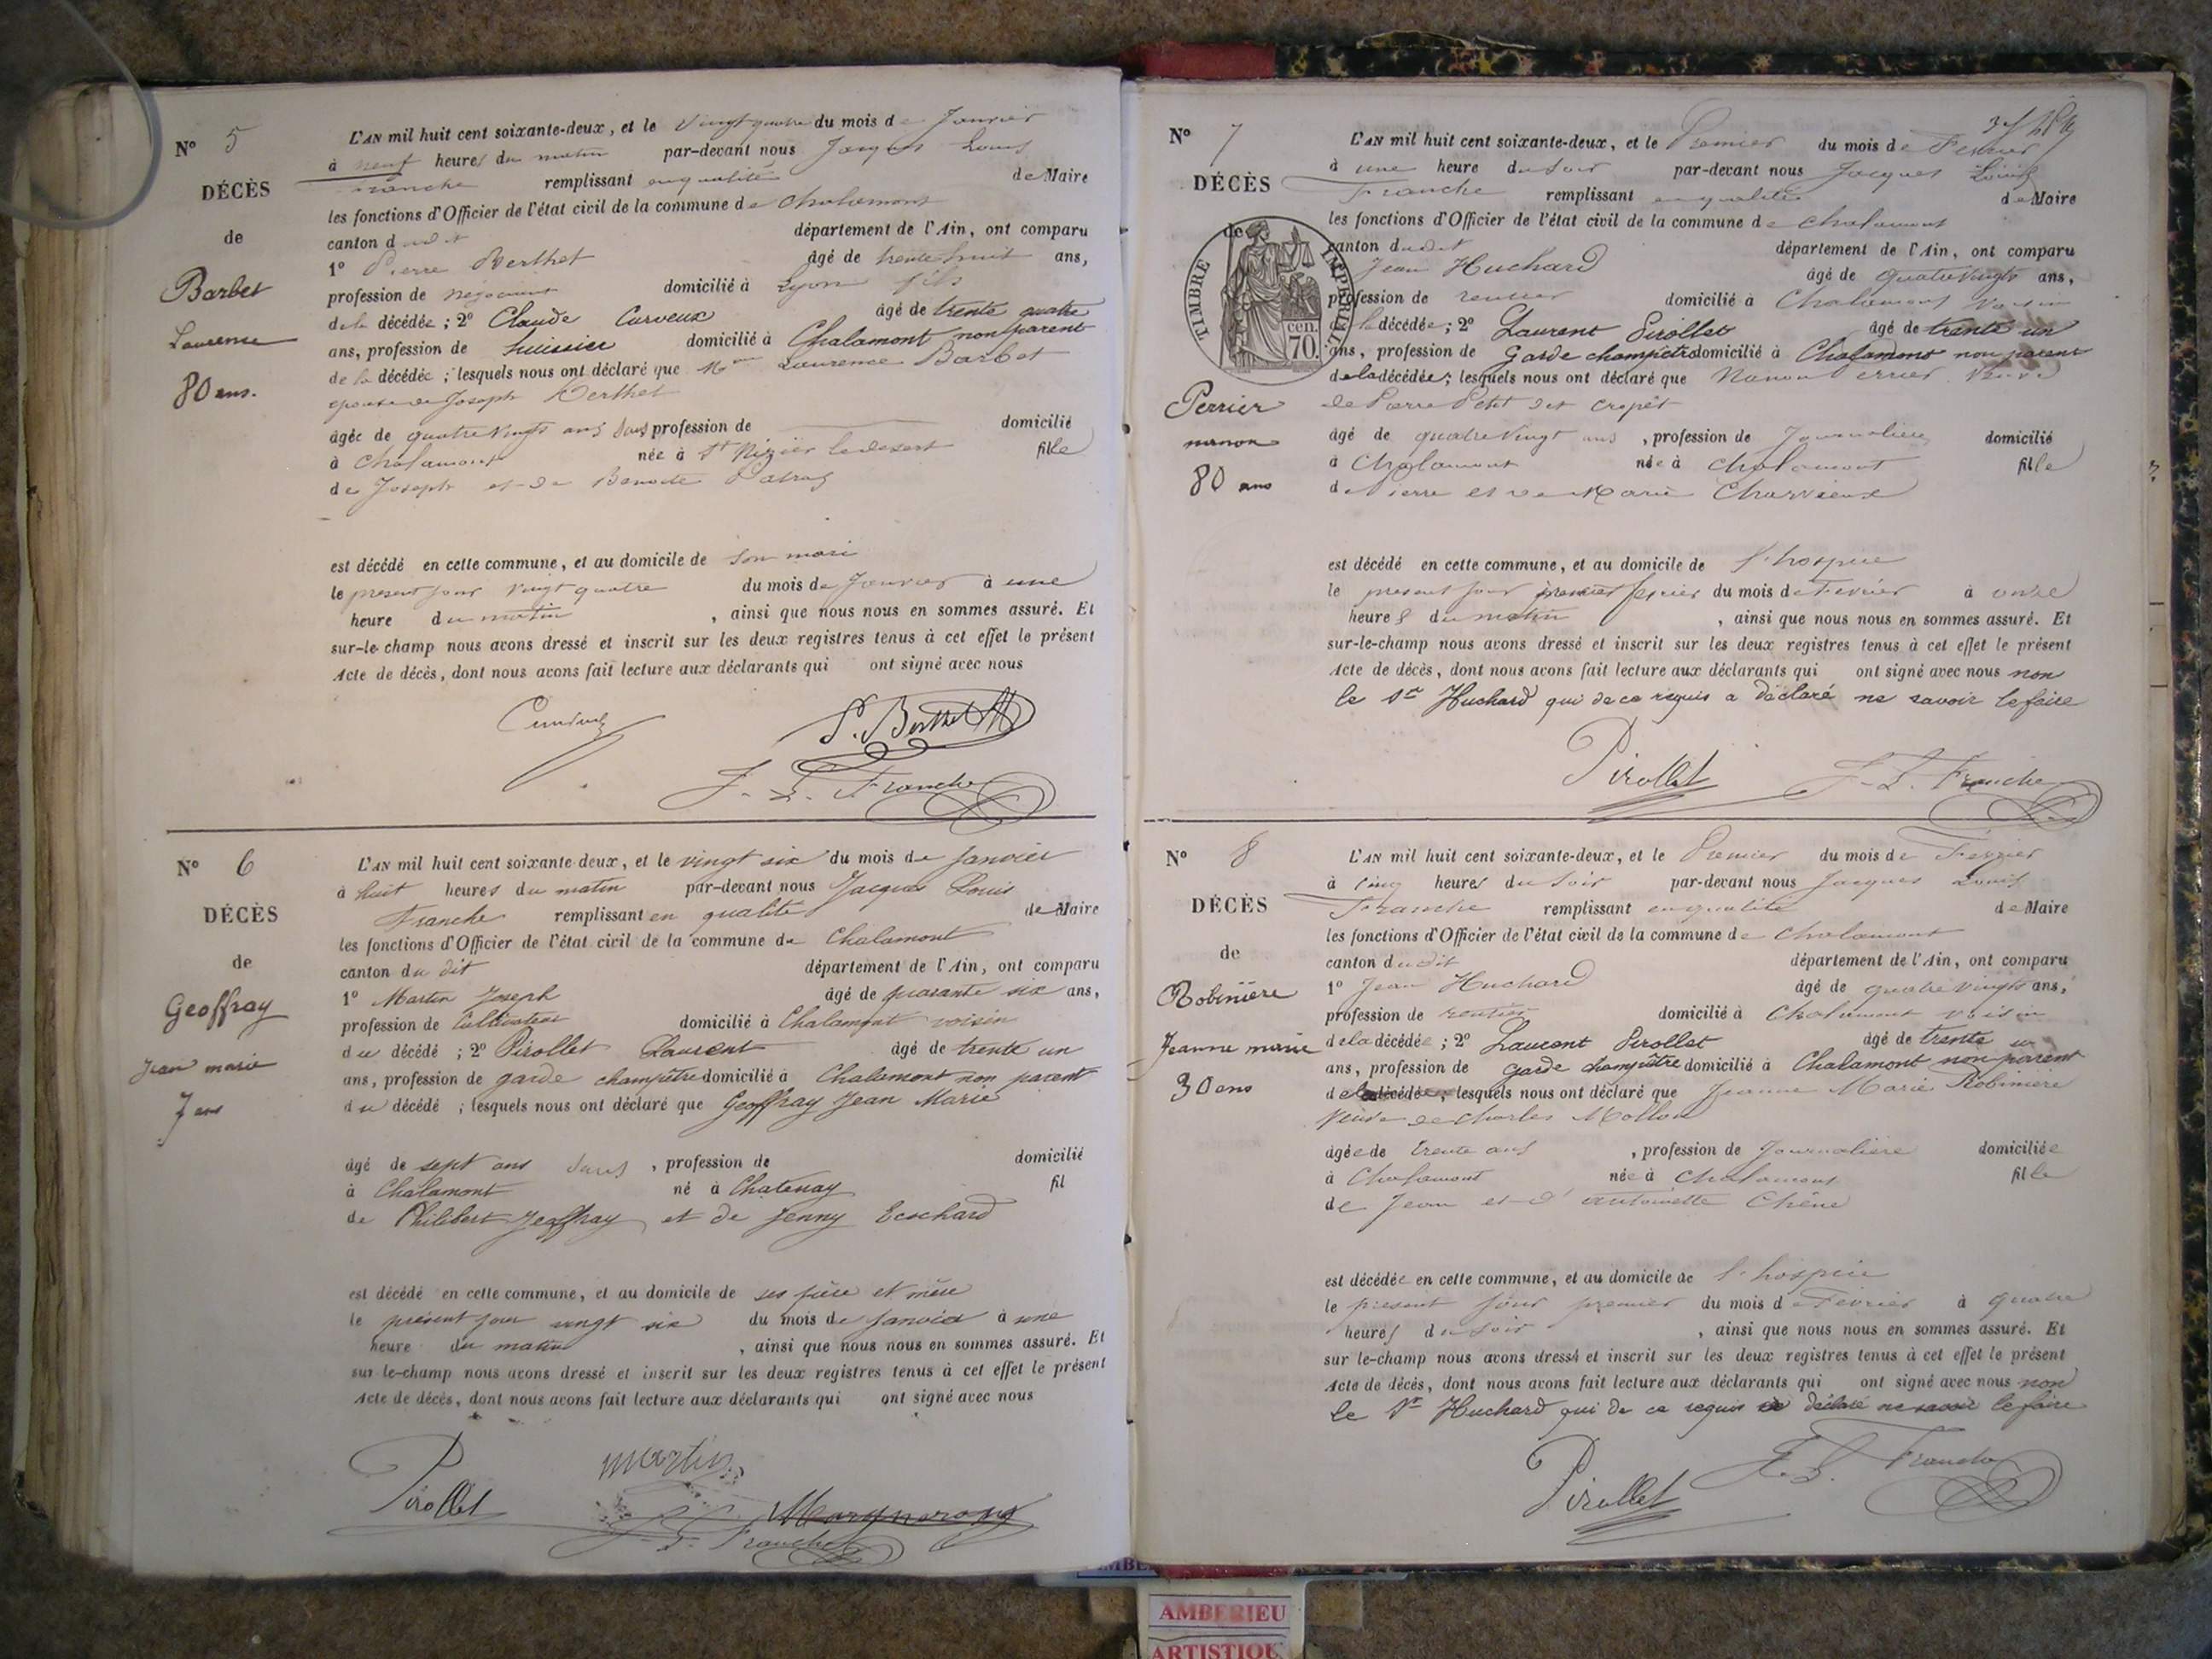 N° 5
DÉCÈS
de
Barbet
Laurence
80 ans.
L'AN mil huit cent soixante-deux, et le vingt quatre du mois de Janvier
à neuf heures du matin par-devant nous Jacques Louis
Franche remplissant en qualité de Maire
les fonctions d'Officier de l'état civil de la commune de Chalamont
canton dudit département de l'Ain, ont comparu
1° Pierre Berthet âgé de trente huit ans,
profession de négociant domicilié à Lyon fils
de la décédée ; 2° Claude Curveux âgé de trente quatre
ans, profession de huissier domicilié à Chalamont non parent
de la décédée ; lesquels nous ont déclaré que Laurence Barbet
épouse de Joseph Berthet
âgée de quatre vingts ans sans profession de domicilié
à Chalamont née à St Nizier le desert fille
de Joseph et de Benoite
est décédé en cette commune, et au domicile de son mari
le present jour vingt quatre du mois de Janvier à une
heure du matin , ainsi que nous nous en sommes assuré. Et
sur-le-champ nous avons dressé et inscrit sur les deux registres tenus à cet effet le présent
Acte de décès, dont nous avons fait lecture aux déclarants qui ont signé avec nous
P. Berthet
J. L. Franche
N° 6
DÉCÈS
de
Geoffray
Jean marie
7 ans
L'AN mil huit cent soixante-deux, et le vingt six du mois de Janvier
à huit heures du matin par-devant nous Jacques Louis
Franche remplissant en qualité de Maire
les fonctions d'Officier de l'état civil de la commune de Chalamont
canton du dit département de l'Ain, ont comparu
1° Martin Joseph âgé de quarante six ans,
profession de Cultivateur domicilié à Chalamont voisin
du décédé ; 2° Pirollet Laurent âgé de trente un
ans, profession de garde champêtre domicilié à Chalamont non parent
du décédé ; lesquels nous ont déclaré que Geoffray Jean Marie
âgé de sept ans sans , profession de domicilié
à Chalamont né à Chatenay fil
de Philibert Jeoffray et de Jenny Ecochard
est décédé en cette commune, et au domicile de ses père et mère
le présent jour vingt six du mois de Janvier à une
heure du matin , ainsi que nous nous en sommes assuré. Et
sur le-champ nous avons dressé et inscrit sur les deux registres tenus à cet effet le présent
Acte de décès, dont nous avons fait lecture aux déclarants qui ont signé avec nous
Pirollet
martin
J. L. Franche
N° 7
DÉCÈS
de
TIMBRE IMPÉRIAL
cen.
70.
Perrier
nanon
80 ans
L'AN mil huit cent soixante-deux, et le Premier du mois de Fevrier
à une heure du soir par-devant nous Jacques Louis
Franche remplissant en qualité de Maire
les fonctions d'Officier de l'état civil de la commune de chalamont
canton dudit département de l'Ain, ont comparu
Jean Huchard âgé de quatre vingts ans,
profession de rentier domicilié à Chalamont voisin
de la décédée ; 2° Laurent Pirollet âgé de trente un
ans, profession de Garde champêtre domicilié à Chalamont non parent
de la décédée ; lesquels nous ont déclaré que Nanon Perrier Veuve
de Pierre Petit dit Cropet
âgé de quatre vingt ans , profession de Journalière domicilié
à Chalamont née à Chalamont fille
de Pierre et de Marie Charvieux
est décédé en cette commune, et au domicile de l'hospice
le present jour premier fevrier du mois de Fevrier à onze
heures du matin , ainsi que nous nous en sommes assuré. Et
sur-le-champ nous avons dressé et inscrit sur les deux registres tenus à cet effet le présent
Acte de décès, dont nous avons fait lecture aux déclarants qui ont signé avec nous non
le Sr Huchard qui de ce requis a déclaré ne savoir le faire
Pirollet
J. L. Franche
N° 8
DÉCÈS
de
Robinière
Jeanne marie
30 ans
L'AN mil huit cent soixante-deux, et le Premier du mois de Fevrier
à cinq heures du soir par-devant nous Jacques Louis
Franche remplissant en qualité de Maire
les fonctions d'Officier de l'état civil de la commune de Chalamont
canton dudit département de l'Ain, ont comparu
1° Jean Huchard âgé de quatre vingts ans,
profession de rentier domicilié à Chalamont voisin
de la décédée ; 2° Laurent Pirollet âgé de trente un
ans, profession de garde champêtre domicilié à Chalamont non parent
de la décédée ; lesquels nous ont déclaré que Jeanne Marie Robiniere
Veuve de Charles Mollon
âgée de trente ans , profession de Journalière domiciliée
à Chalamont née à Chalamont fille
de Jean et d'antoinette Chêne
est décédée en cette commune, et au domicile de l'hospice
le présent jour premier du mois de Fevrier à quatre
heures du soir , ainsi que nous nous en sommes assuré. Et
sur le-champ nous avons dressé et inscrit sur les deux registres tenus à cet effet le présent
Acte de décès, dont nous avons fait lecture aux déclarants qui ont signé avec nous non
le Sr Huchard qui de ce requis a déclaré ne savoir le faire
Pirollet
J. L. Franche
AMBERIEU
ARTISTIQU